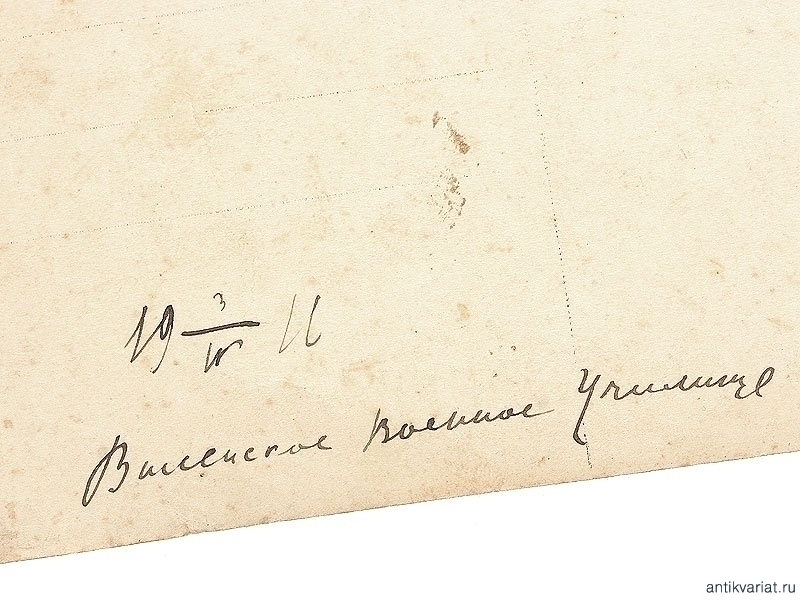 19 3/IV 11
Виленское военное Училище
antikvariat.ru